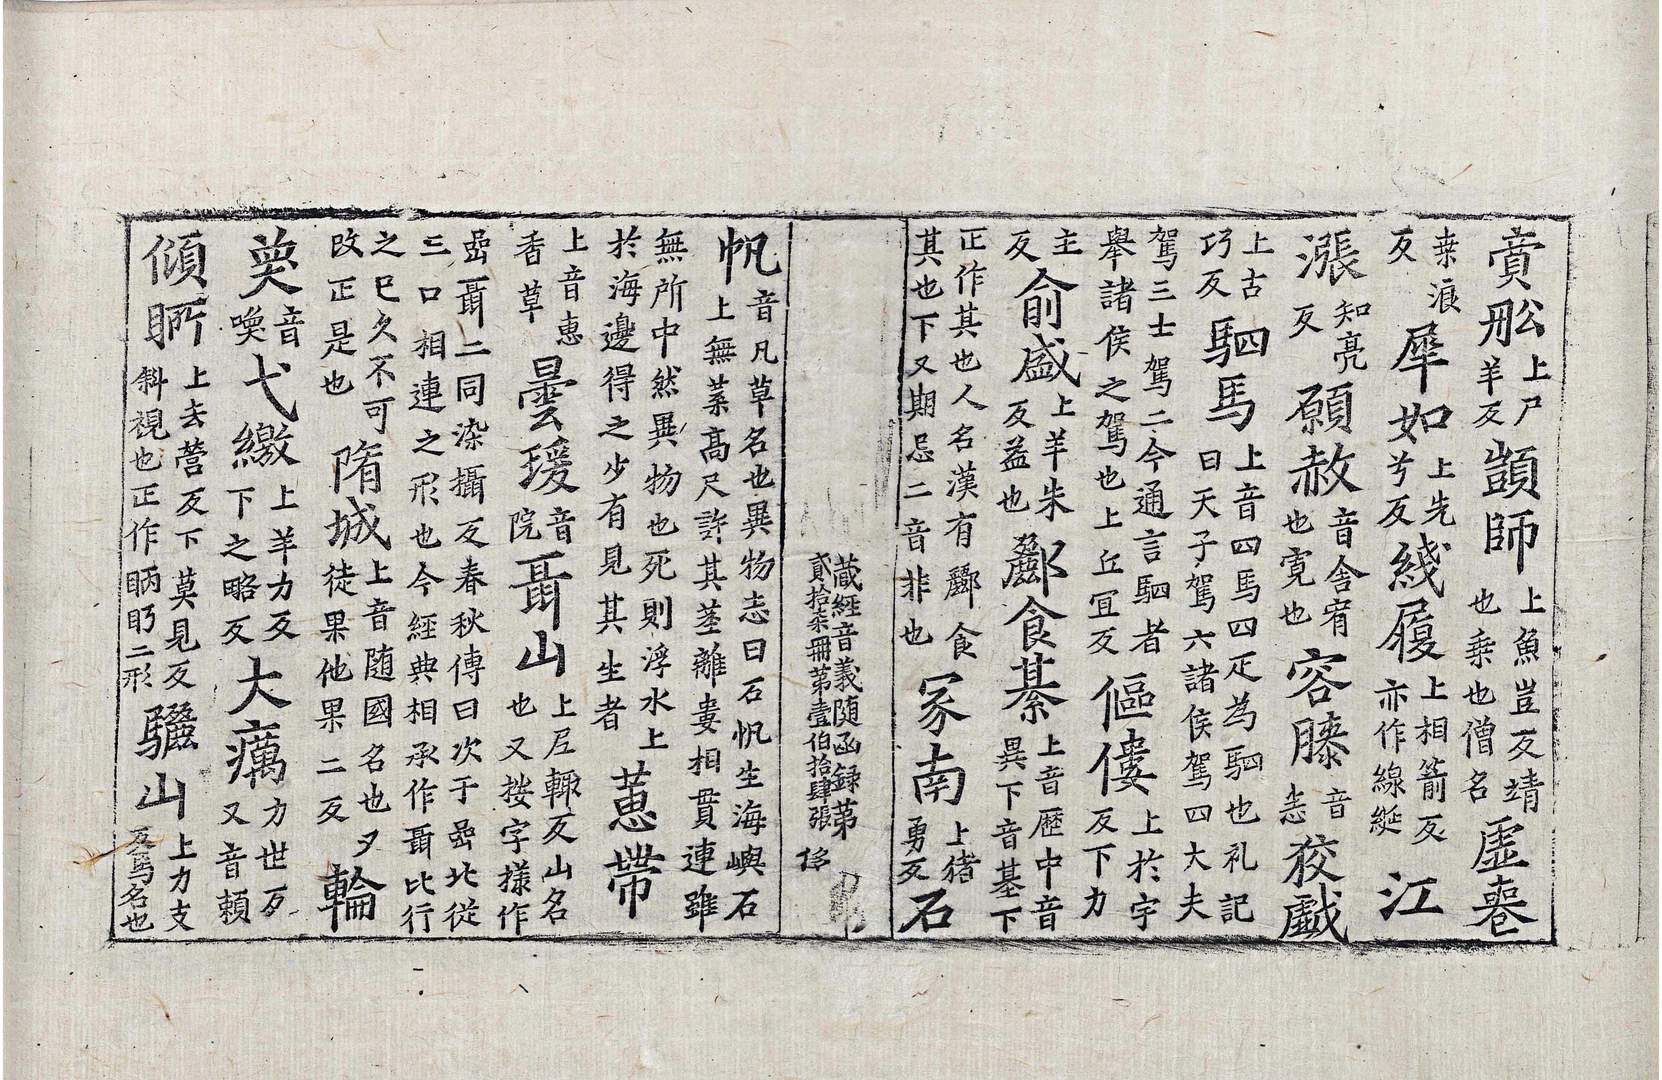 賫舩上尸羊反顗師上魚豈反靖也乗也僧名虛䘮
桒浪反犀如上先兮反綫履上相箭反亦作線綖江
漲知亮反願赦音舎宥也寛也容賸音恙狡戲
上古巧反駟馬上音四馬四疋為駟也礼記曰天子駕六諸侯駕四大夫
駕三士駕二今通言駟者舉諸侯之駕也上丘冝反傴僂上於宇反下力
主反俞盛上羊朱反益也酈食綦上音歷中音異下音基下
正作其也人名漢有酈食其也下又期忌二音非也冡南上猪勇反石
藏經音義随函録第貳拾柒冊第壹伯拾肆張 侈
帆音凡草名也異物志曰石帆生海嶼石上無葉高尺許其莖離婁相貫連雖
無所中然異物也死則浮水上於海邊得之少有見其生者蕙帶
上音惠香草曇瑗音院聶山上尼輙反山名也又搂字樣作
喦聶二同染攝反春秋傳曰次于喦北從三口相連之形也今經典相承作聶比行
之已久不可改正是也隋城上音随國名也又徒果他果二反輪
奐音喚弋繳上羊力反下之略反大癘力世反又音賴
傾眄上去营反下莫見反斜視也正作眄眄二形驪山上力支反馬名也